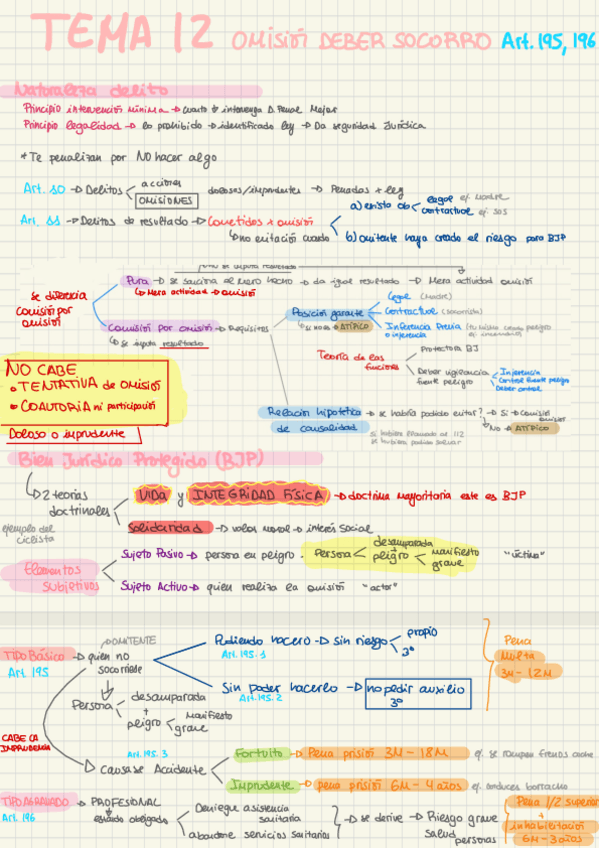 TEMA 12 OMISIÓN DEBER SOCORRO Art. 195, 196
Naturaleza delito
Principio intervención mínima → cuanto - intervenga D. Penal Mejor
Principio legalidad → lo prohibido → identificado ley → Da seguridad Jurídica
* Te penalizan por NO hacer algo
Art. 10 → Delitos acciones dolosas/imprudentes → Penadas x ley
OMISIONES
Art. 11 → Delitos de resultado → Cometidos x omisión a) exista ob legal ej. madre
contractual ej. SOS
↳ no evitación cuando b) omitente haya creado el riesgo para BJP
no se imputa resultado
Pura → se sanciona el mero hecho → da igual resultado → Mera actividad omisión
↳ Mera actividad → omisión
Se diferencia
comisión por
omisión
legal (madre)
Comisión por omisión → Requisitos Posición garante contractual (socorrista)
↳ se imputa resultado
↳ Si no es → ATÍPICO
Injerencia Previa
o injerencia
Teoría de las
funciones
Protectora BJ
Deber vigilancia
frente peligro
Injerencia
Control fuente peligro
Deber control
NO CABE
• TENTATIVA de omisión
• COAUTORIA ni participación
Doloso o imprudente
Relación hipotética
de causalidad
→ se habría podido evitar? → Si → Comisión
omisión
No → ATÍPICO
Si hubiera llamado al 112
se hubiera podido salvar
Bien Jurídico Protegido (BJP)
↳ 2 teorías
doctrinales
VIDA y INTEGRIDAD FÍSICA → doctrina mayoritaria este es BJP
Solidaridad → valor moral → interés social
ejemplo del
ciclista
Elementos
subjetivos
Sujeto Pasivo → persona en peligro. Persona desamparada
+
peligro manifiesto
grave
"víctima"
Sujeto Activo → quien realiza la omisión "autor"
OMITENTE
TIPO Básico → quien no
socorriede
Art. 195
Pudiendo hacerlo → sin riesgo propio
3º
Art. 195.1
Sin poder hacerlo → no pedir auxilio
3º
Art. 195.2
Pena
Multa
3M - 12M
Persona desamparada
+
peligro manifiesto
grave
CABE LA
IMPRUDENCIA
Art. 195.3
Causase Accidente
Fortuito → Pena prisión 3M - 18M ej. se rompen frenos coche
Imprudente → pena prisión 6M - 4 años ej. conduces borracho
TIPO AGRAVADO → PROFESIONAL
Art. 196
estando obligado
Deniegue asistencia
sanitaria
abandone servicios sanitarios
→ se derive → Riesgo grave
salud personas
Pena 1/2 superior
+
inhabilitación
6M - 3 años